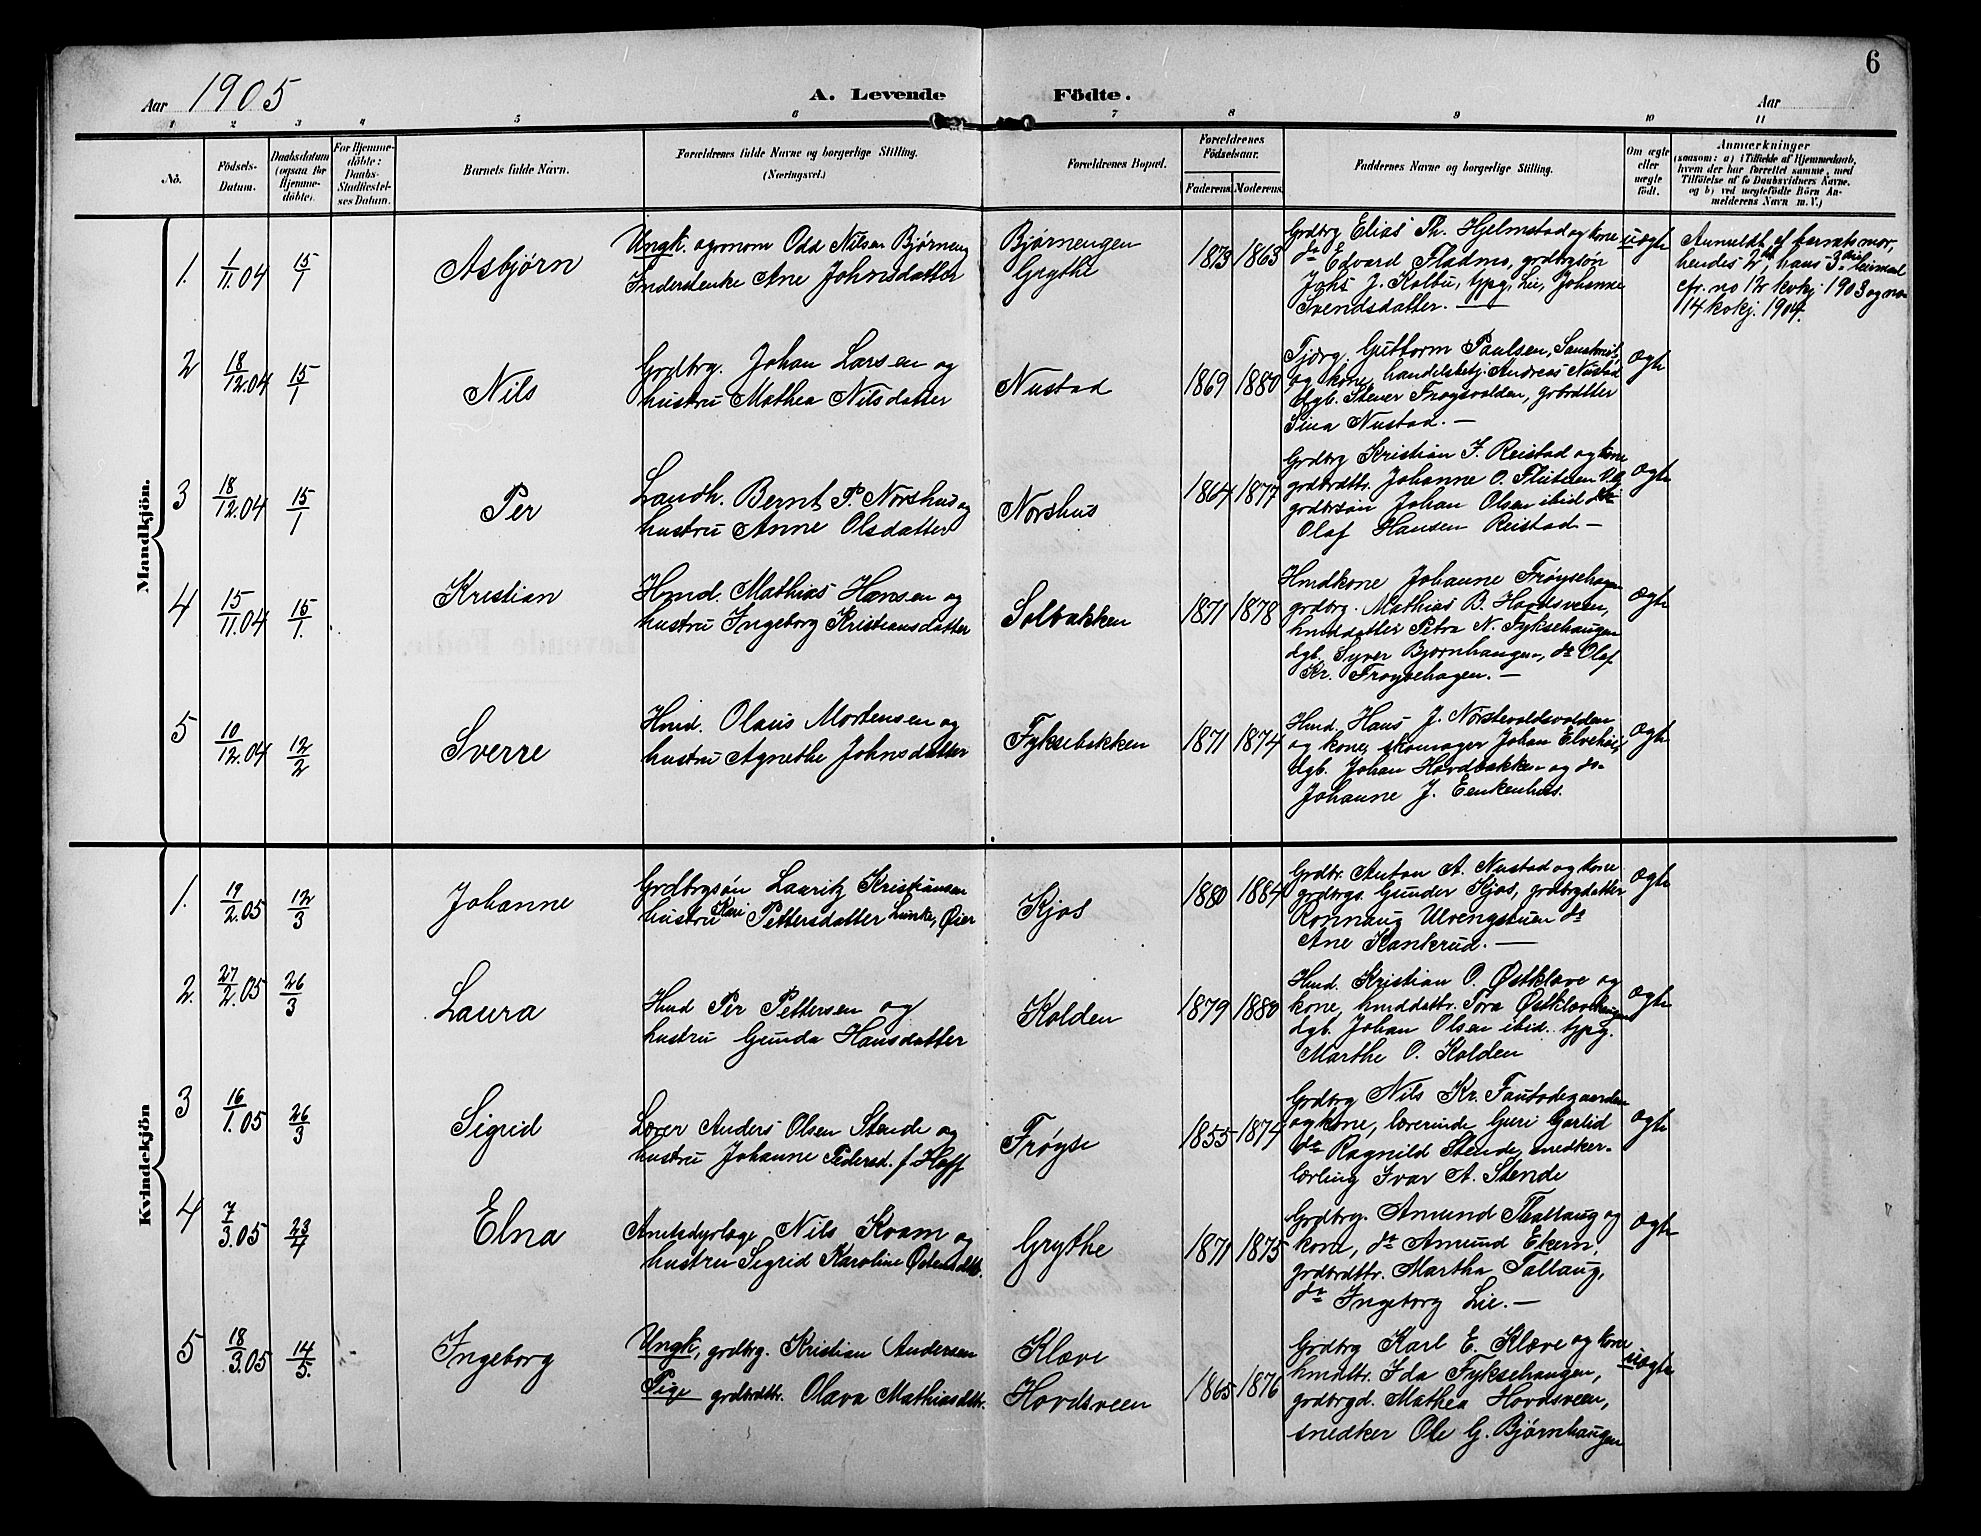 6
Aar 1905
A. Levende Födte.
Aar
1 2 3 4 5 6 7 8 9 10 11
No.
Födsels-Datum.
Daabsdatum (ogsaa for Hjemme-döbte).
For Hjemme-döbte: Daabs-Stadfæstel-ses Datum.
Barnets fulde Navn.
Forældrenes fulde Navne og borgerlige Stilling.
(Næringsvei.)
Forældrenes Bopæl.
Forældrenes Födselsaar.
Faderens. Moderens.
Faddernes Navne og borgerlige Stilling.
Om ægte eller uægte födt.
Anmærkninger
(saasom: a) i Tilfælde af Hjemmedaab,
hvem der har forrettet samme, med
Tilföielse af to Daabsvidners Navne,
og b) ved uægtefödte Börn An-
melderens Navn m. V.)
Mandkjön.
1. 1/11.04 15/1 Asbjørn
Ungk. agronom Odd Nilsen Bjørneng
Inderstenke Ane Johnsdatter
Bjørnengen
Grythe
1873 1863
Grdbrg Elias Th. Hjelmstad og kone
do Edvard Fladmo, grdbrgsøn
Johs J. Kolbu, tjpg. Lie, Johanne
Svendsdatter. —
uægte
Anmeldt af barnets mor,
hendes 2det, hans 3die leiermaal
cfr. no 12 kvkj. 1903 og no
14 kvkj. 1904.
2 18/12.04 15/1 Nils
Grdbrg. Johan Larsen og
hustru Mathea Nilsdatter
Nustad
1869 1880
Guttorm Paulsen,
og kone, handelsbetj. Andreas Nustad
dgb. Stener Frøgsvolden, grbrdtter
Sina Nustad. —
ægte
3 18/12.04 15/1 Per
Landh. Bernt P. Norshus og
hustru Anne Olsdatter
Norshus
1864 1877
Grdbrg Kristian J. Reistad og kone
grdbrdttr. Johanne O.
grdbrsøn Johan Olsen ibid do
Olaf Hansen Reistad —
ægte
4 15/11.04 15/1. Kristian
Hmd. Mathias Hansen og
hustru Ingeborg Kristiansdatter
Solbakken
1871 1878
Hmdkone Johanne Frøysehagen
grdbrg. Mathias B. Hovdsveen,
hmddatter Petra N. Fyksehaugen
dgb. Syver Bjørnhaugen, do Olaf
Kr. Frøysehagen. —
ægte
5 10/12.04 12/2 Sverre
Hmd. Olaus Mortensen og
hustru Agnethe Johnsdatter
Fyksebakken
1871 1874
Hmd. Hans J.
og kone, skomager Johan
dgb. Johan Hovdbakken og do
Johanne J. Eenkenhus.
ægte
Kvindekjön
1. 19/2.05 12/3 Johanne
Grdbrgsøn Lauritz Kristiansen
hustru Kari Pettersdatter Lunke, Øier
Kjos
1880 1884
Grdbr. Anton A. Nustad og kone
grdbrgs. Gunder Kjos, grdbrgdatter
Rønnaug Ulvengstuen do
Ane Kankrud. —
ægte
2. 27/2.05 26/3 Laura
Hmd Per Pettersen og
hustru Gunda Hansdatter
Kolden
1879 1880
Hmd. Kristian O. Østklæve og
kone, hmddattr. Tora
dgb. Johan Olsen ibid. tjpg.
Marthe O. Kolden
ægte
3 16/1.05 26/3 Sigrid
Lærer Anders Olsen Stende og
hustru Johanne Pedersd. f. Hoff
Frøyse
1855 1874
Grdbrg Nils Kr. Fautodegaarden
og kone, lærerinde Guri Garlid
do Ragnild Stende, snedker-
lærling Ivar A. Stende
ægte
4 7/3.05 23/4 Elna
Amtsdyrlæge Nils Kvam og
hustru Sigrid Karoline Østensdtt.
Grythe
1871 1875
Grdbrg. Amund Thallaug og
kone, do Amund Ekern,
grdbrdttr. Martha Tallaug,
do Ingeborg Lie. —
ægte
5 18/3.05 14/5. Ingeborg
Ungk, grdbrg. Kristian Andersen
Pige grdbrdttr. Olava Mathiasdttr.
Klæve
Hovdsveen
1865 1876
Grdbrg Karl E. Klæve og kone
hmddtr. Ida Fyksehaugen,
grdbrgd. Mathea Hovdsveen,
snedker Ole G. Bjørnhaugen
uægte